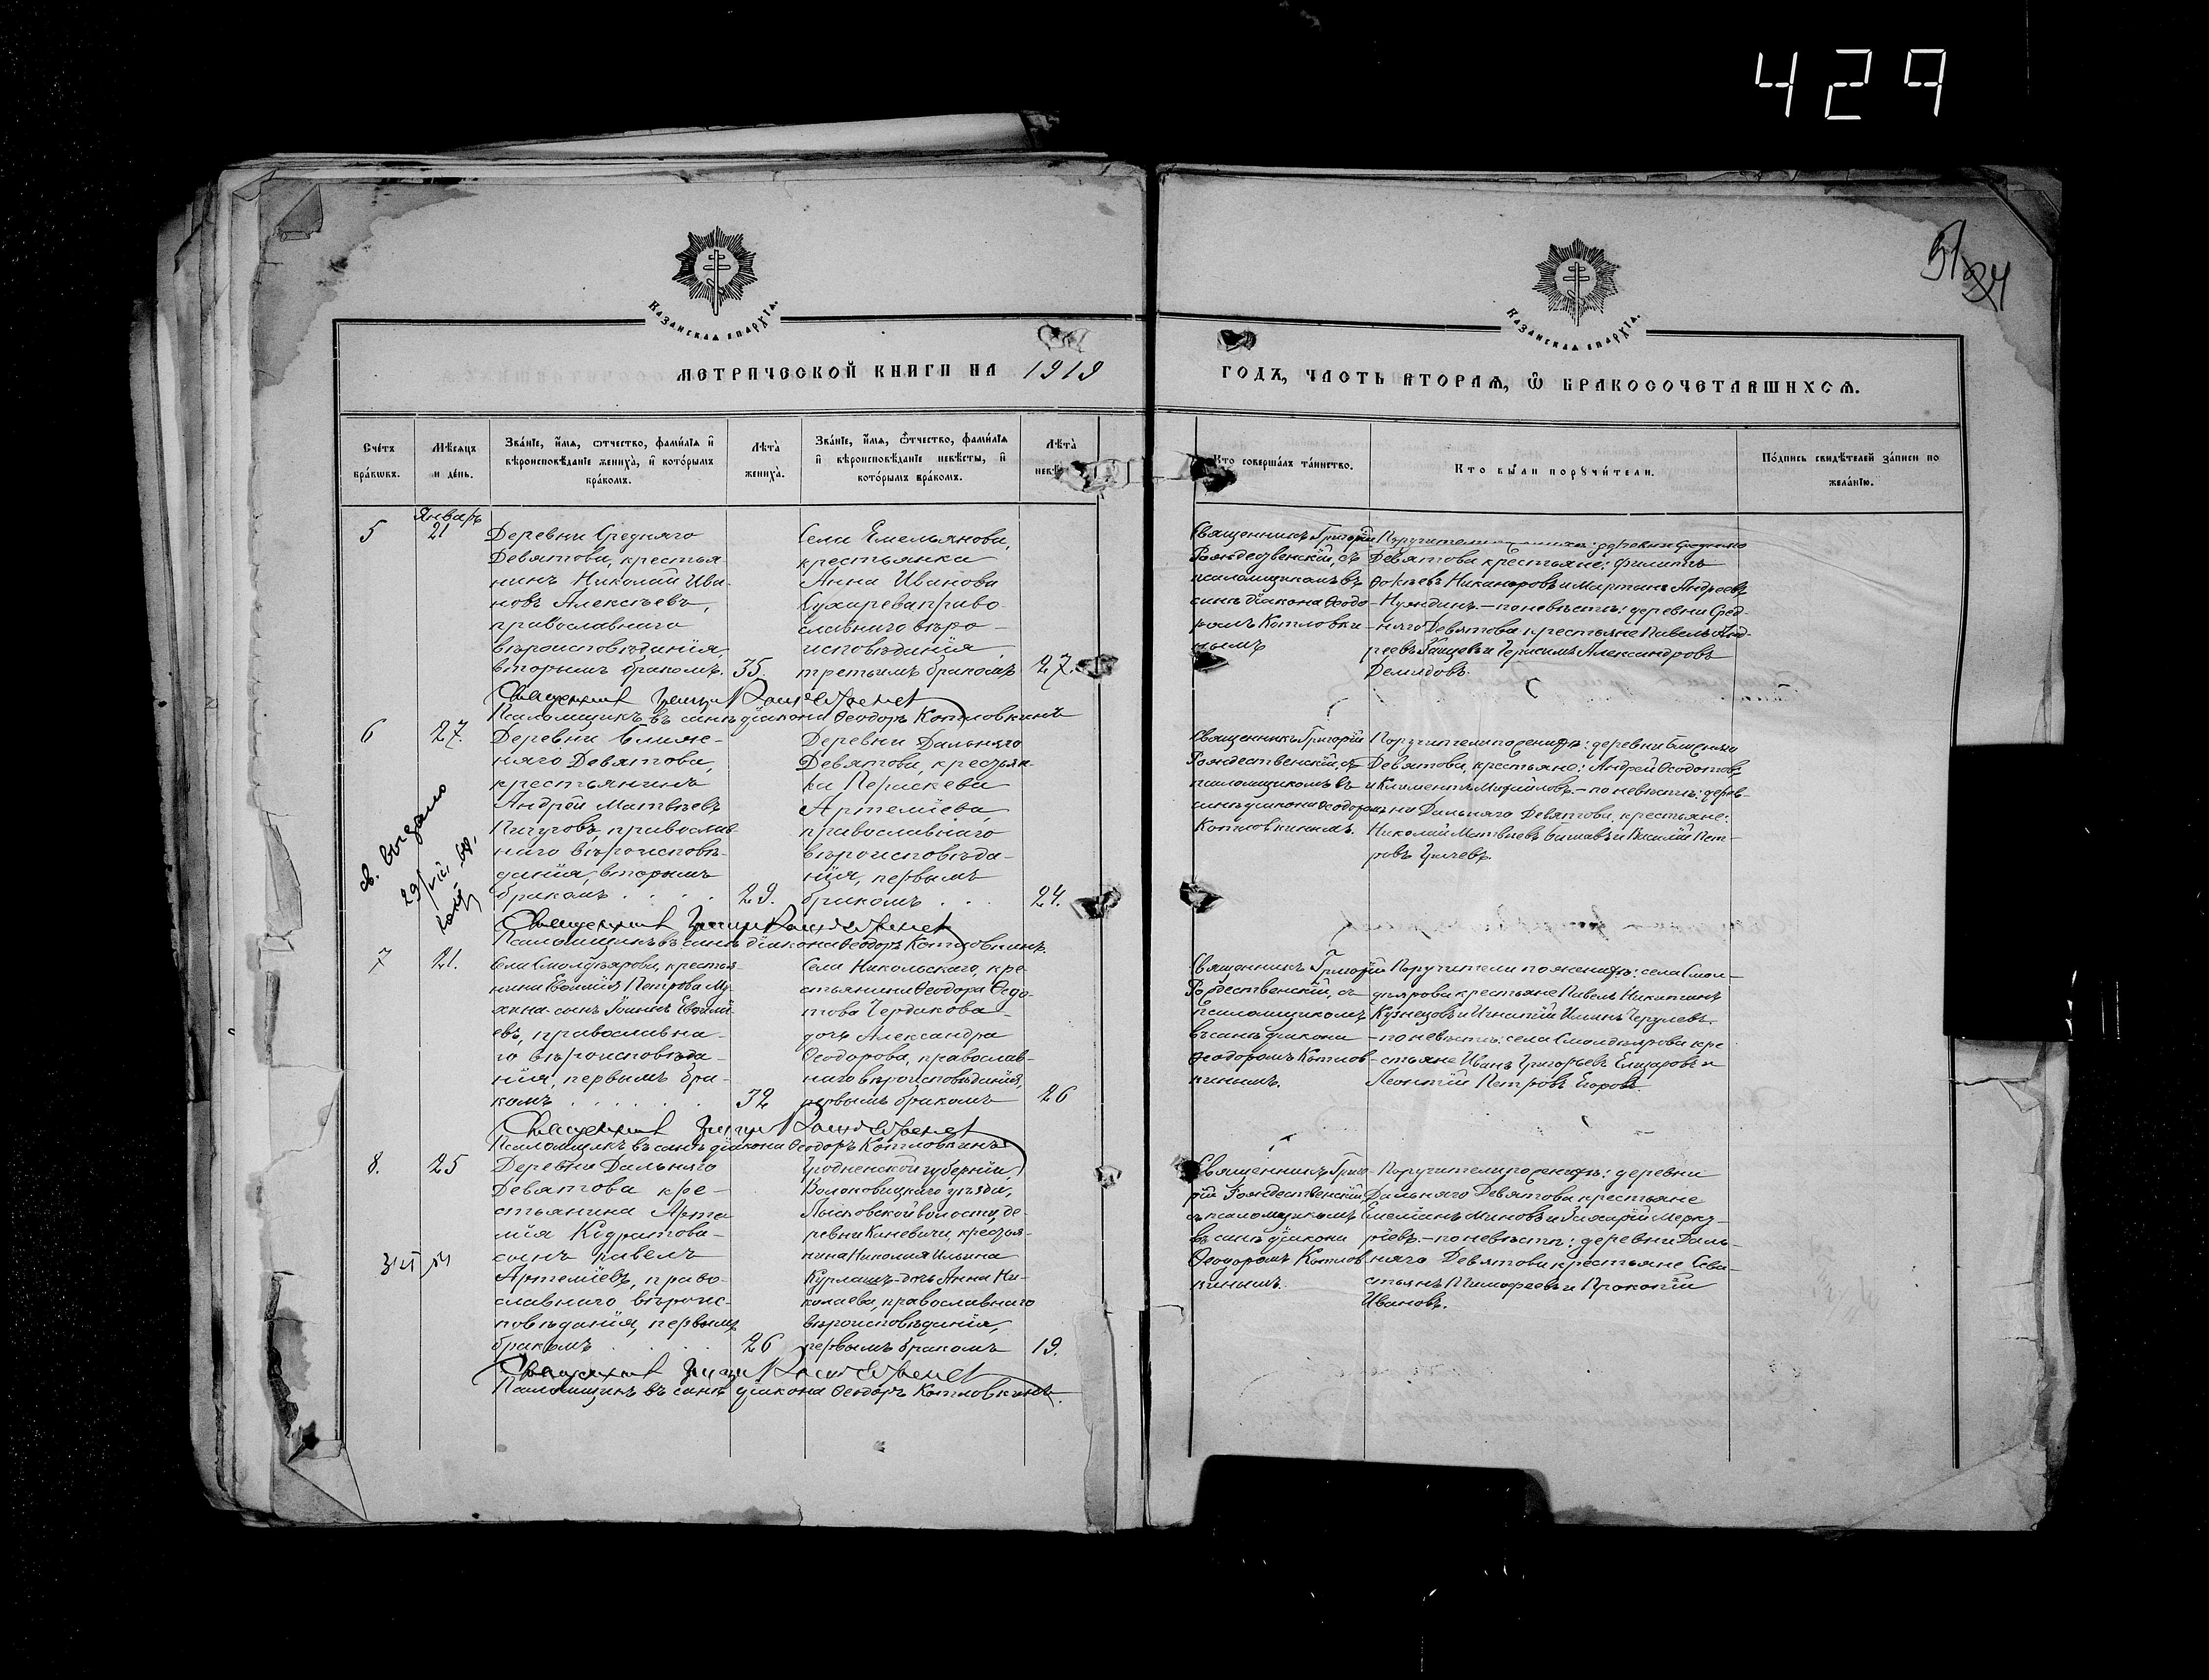 429
51
24
КАЗАНСКАѦ ЕПАРХІѦ.
КАЗАНСКАѦ ЕПАРХІѦ.
МЕТРИЧЕСКОЙ КНИГИ НА 1919
ГОДЪ, ЧАСТЬ ВТОРАѦ, Ѿ БРАКОСОЧЕТАВШИХСѦ.
Счетъ браковъ.
Мѣсяцъ и день.
Званіе, имя, отчество, фамилія и вѣроисповѣданіе жениха, и которымъ бракомъ.
Лѣта жениха.
Званіе, имя, отчество, фамилія и вѣроисповѣданіе невѣсты, и которымъ бракомъ.
Лѣта
Кто совершалъ таинство.
Кто были поручители.
Подпись свидѣтелей записи по желанію.
Январь
5
21
Деревни Средняго
Девятова, крестья-
нинъ Николай Ива-
новъ Алексѣевъ,
православнаго
вѣроисповѣданія,
вторымъ бракомъ.
35.
Села Емельянова,
крестьянка
Анна Иванова
Сухарева право-
славнаго вѣро-
исповѣданія
третьимъ бракомъ
27.
Священникъ Григорій
Рождественскій, съ
псаломщикомъ въ
санѣ діакона Ѳеодо-
ромъ Котловки-
нымъ
Поручители по женихѣ: деревни Средняго
Девятова крестьяне: Филиппъ
Никаноровъ и Мартинъ Андреевъ
- по невѣстѣ: деревни Сред-
няго Девятова крестьяне Павелъ Анд-
реевъ и Герасимъ Александровъ
Демидовъ.
Священникъ Григорій Рождественскій
Псаломщикъ въ санѣ діакона Ѳеодоръ Котловкинъ
6
27.
Деревни Ближ-
няго Девятова,
крестьянинъ
Андрей Матвѣевъ
Пичуговъ, православ-
наго вѣроисповѣ-
данія, вторымъ
бракомъ
29.
Деревни Дальняго
Девятова, крестьян-
ка Параскева
Артеміева,
православнаго
вѣроисповѣда-
нія, первымъ
бракомъ
24.
св. выдано
Священникъ Григорій
Рождественскій, съ
псаломщикомъ въ
санѣ діакона Ѳеодоромъ
Котловкинымъ.
Поручители по женихѣ: деревни Ближняго
Девятова, крестьяне: Андрей Ѳеодотовъ
и Климентъ Михайловъ. - по невѣстѣ: дерев-
ни Дальняго Девятова, крестьяне:
Николай Матвѣевъ и Василій Пет-
ровъ
Священникъ Григорій Рождественскій
Псаломщикъ въ санѣ діакона Ѳеодоръ Котловкинъ.
7
21.
Села Смолдеярова, крестья-
нина Евфимія Петрова Му-
хина сынъ Іоаннъ Евфимі-
евъ, православна-
го вѣроисповѣда-
нія, первымъ бра-
комъ
32
Села Никольскаго, кре-
стьянина Ѳеодора Ѳедо-
това Чердакова
дочь Александра
Ѳеодорова, православ-
наго вѣроисповѣданія,
первымъ бракомъ
26
Священникъ Григорій
Рождественскій, съ
псаломщикомъ
въ санѣ діакона
Ѳеодоромъ Котлов-
кинымъ.
Поручители по женихѣ: села Смол-
деярова крестьяне Павелъ Никитинъ
Кузнецовъ и Игнатій Ильинъ
- по невѣстѣ: села Смолдеярова кре-
стьяне Иванъ Григорьевъ Елизаровъ и
Леонтій Петровъ Егоровъ.
Священникъ Григорій Рождественскій
Псаломщикъ въ санѣ діакона Ѳеодоръ Котловкинъ
8.
25
Деревни Дальняго
Девятова кре-
стьянина Арте-
мія Кодратова
сынъ Павелъ
Артеміевъ, право-
славнаго вѣроис-
повѣданія, первымъ
бракомъ
26
Гродненской губерніи,
Волковыцкаго уѣзда,
Лысковской волости, де-
ревни Каневичи, крестья-
нина Николая Ильина
Курлашъ - дочь Анна Ни-
колаева, православнаго
вѣроисповѣданія,
первымъ бракомъ
19.
Священникъ Григо-
рій Рождественскій
съ псаломщикомъ
въ санѣ діакона
Ѳеодоромъ Котлов-
кинымъ.
Поручители по женихѣ: деревни
Дальняго Девятова крестьяне
Емеліанъ Миновъ и Захарій Мерку-
ріевъ. - по невѣстѣ: деревни Даль-
няго Девятова крестьяне Сева-
стьянъ Тимофеевъ и Прокопій
Ивановъ.
Священникъ Григорій Рождественскій
Псаломщикъ въ санѣ діакона Ѳеодоръ Котловкинъ.